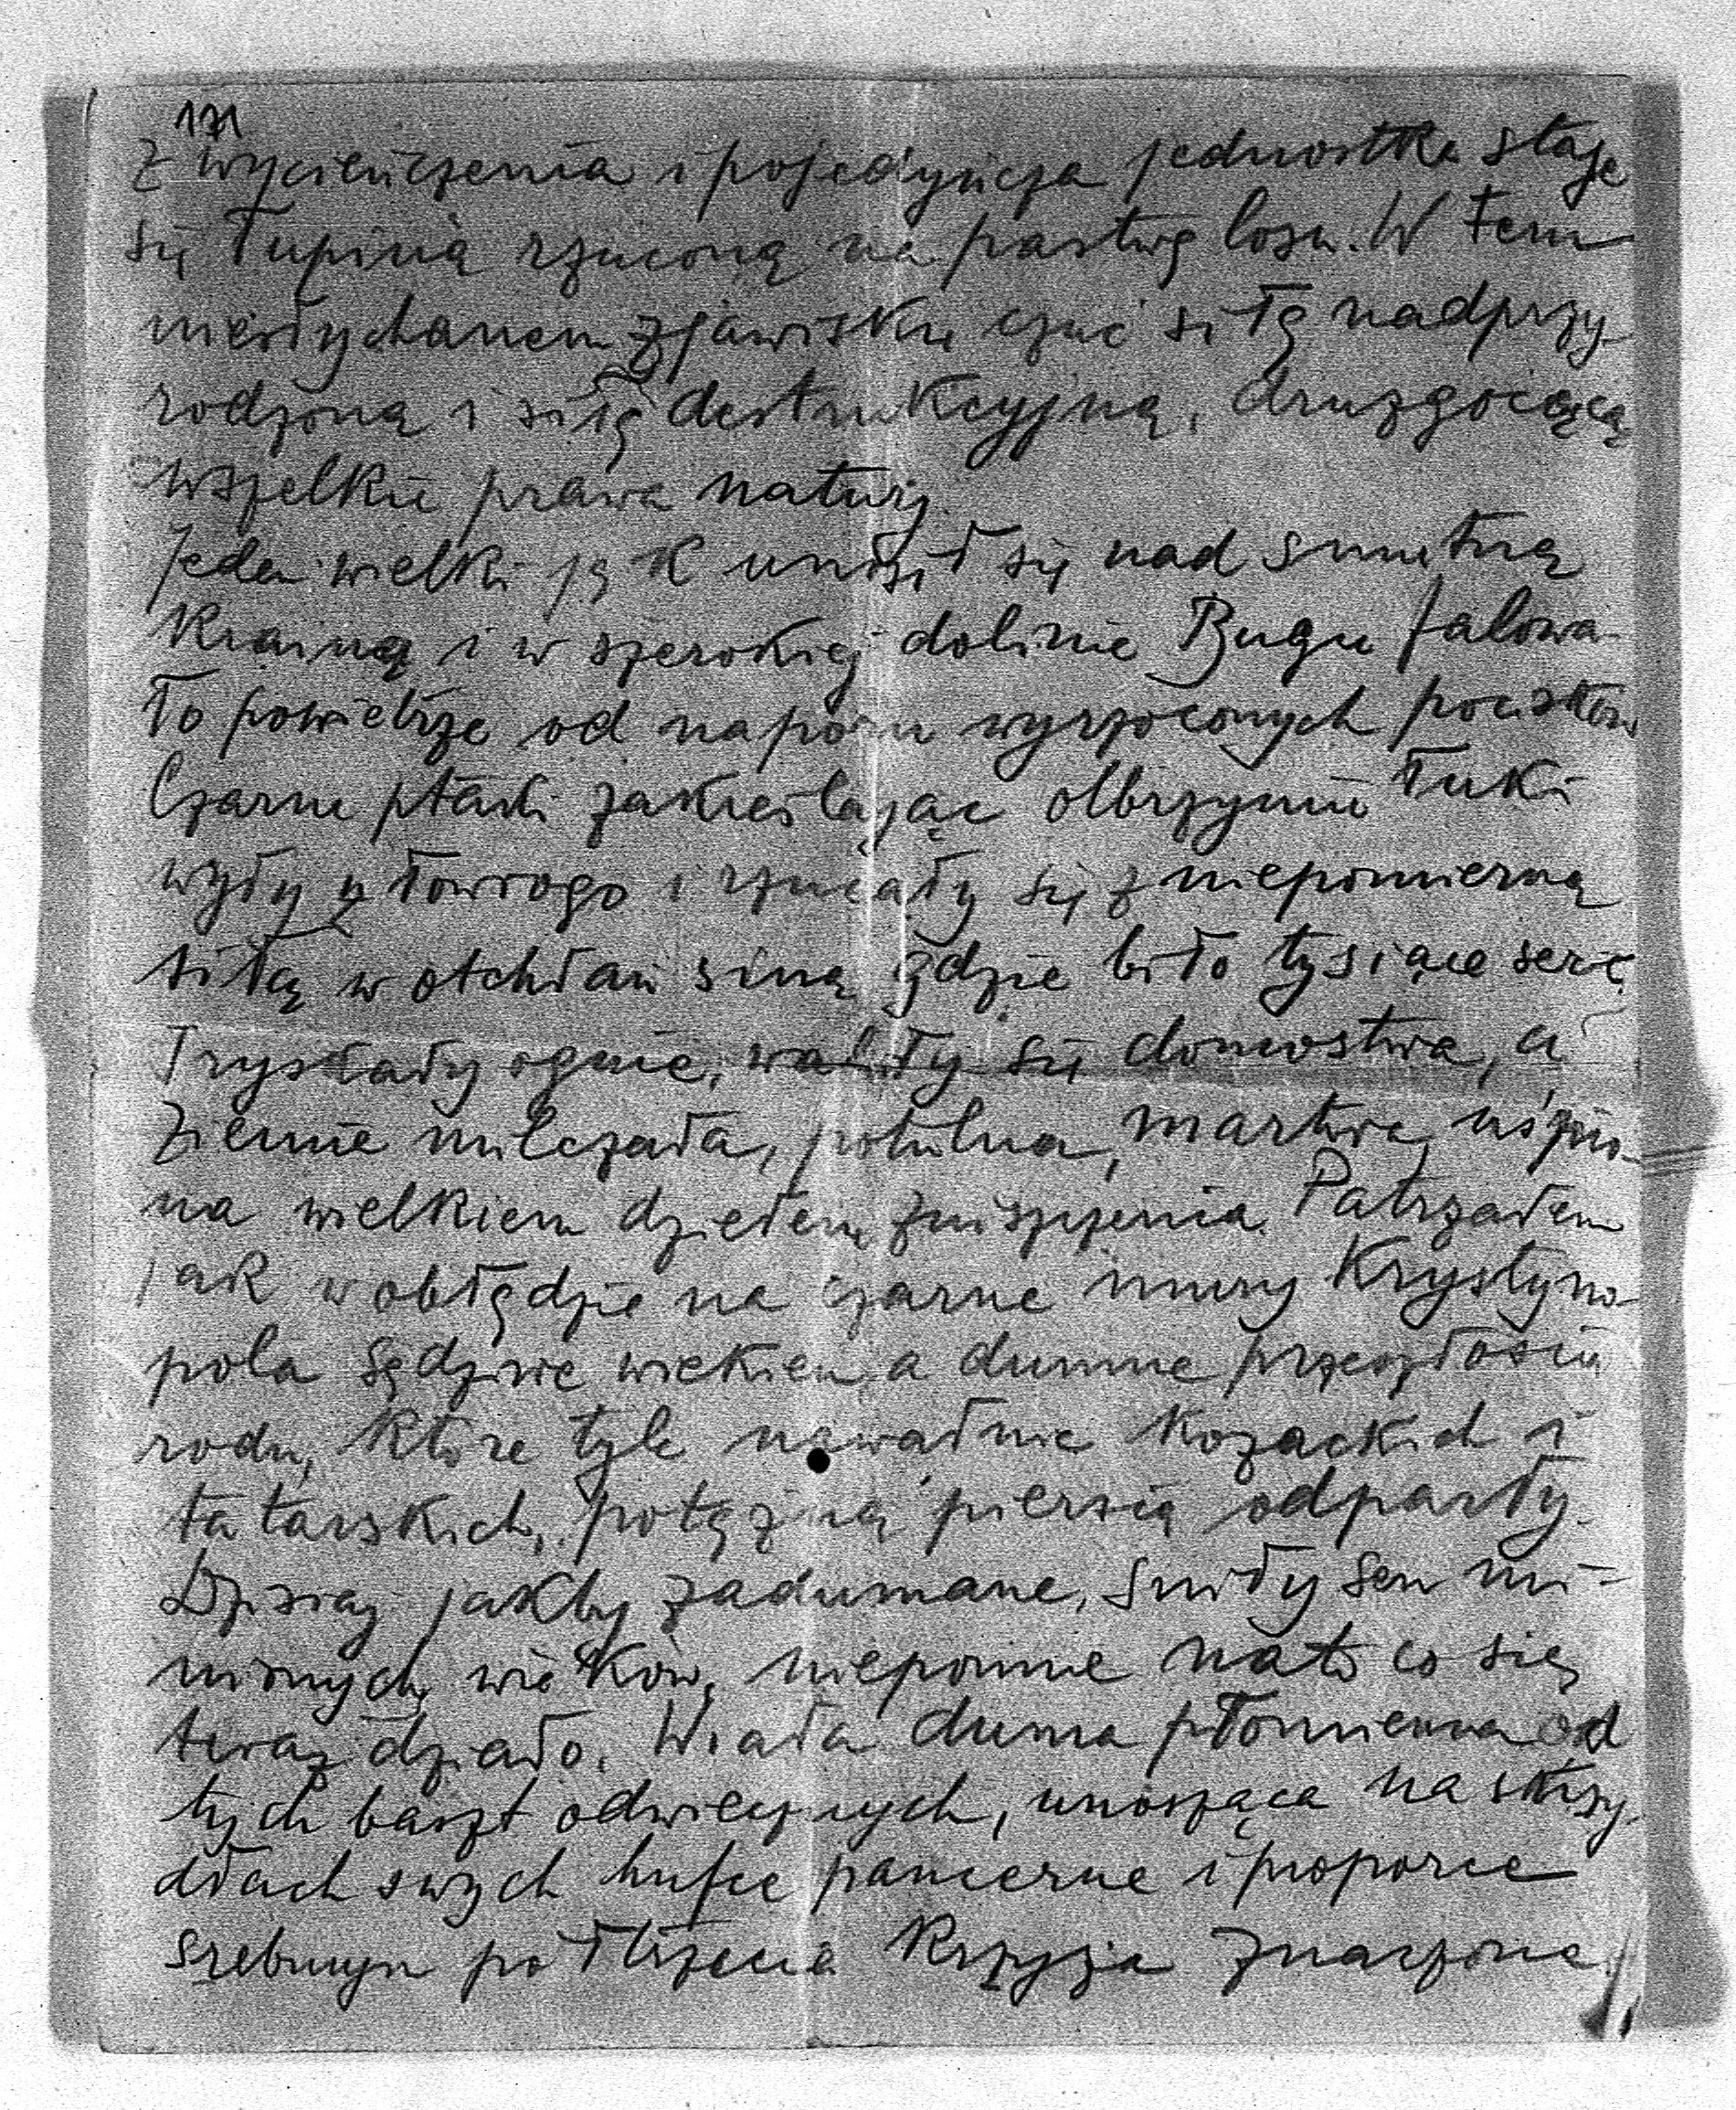 171
z wycieńczenia i pojedyńcza jednostka staje
się łupiną rzuconą na pastwę losu. W tem
niesłychanem zjawisku czuć siłę nadprzy-
rodzoną i siłę destrukcyjną, druzgocącą
wszelkie prawa natury.
Jeden wielki jęk unosił się nad smutną
krainą i w szerokiej dolinie Bugu falowa-
ło powietrze od naporu wyrzóconych pocisków
Czarne ptaki zakreślając olbrzymie łuki
wyły złowrogo i rzucały się z niepomierną
siłą w otchłań siną gdzie biło tysiące serc.
Tryskały ognie, waliły się domostwa, a
ziemia milczała, potulna, martwa, uśpio-
na wielkiem dziełem zniszczenia. Patrzałem
jak w obłędzie na czarne mury Krystyno-
pola sędziwe wiekiem a dumne przeszłością
rodu, które tyle nawałnic kozackich i
tatarskich, potężną piersią odparły.
Dzisiaj jakby zadumane, śniły sen mi-
nionych wieków, niepomne nato co się
teraz działo. Wiała duma płomienna od
tych baszt odwiecznych, unosząca na skrzy-
dłach swych hufce pancerne i proporce
srebnym półtrzecia Krzyża znaczone.